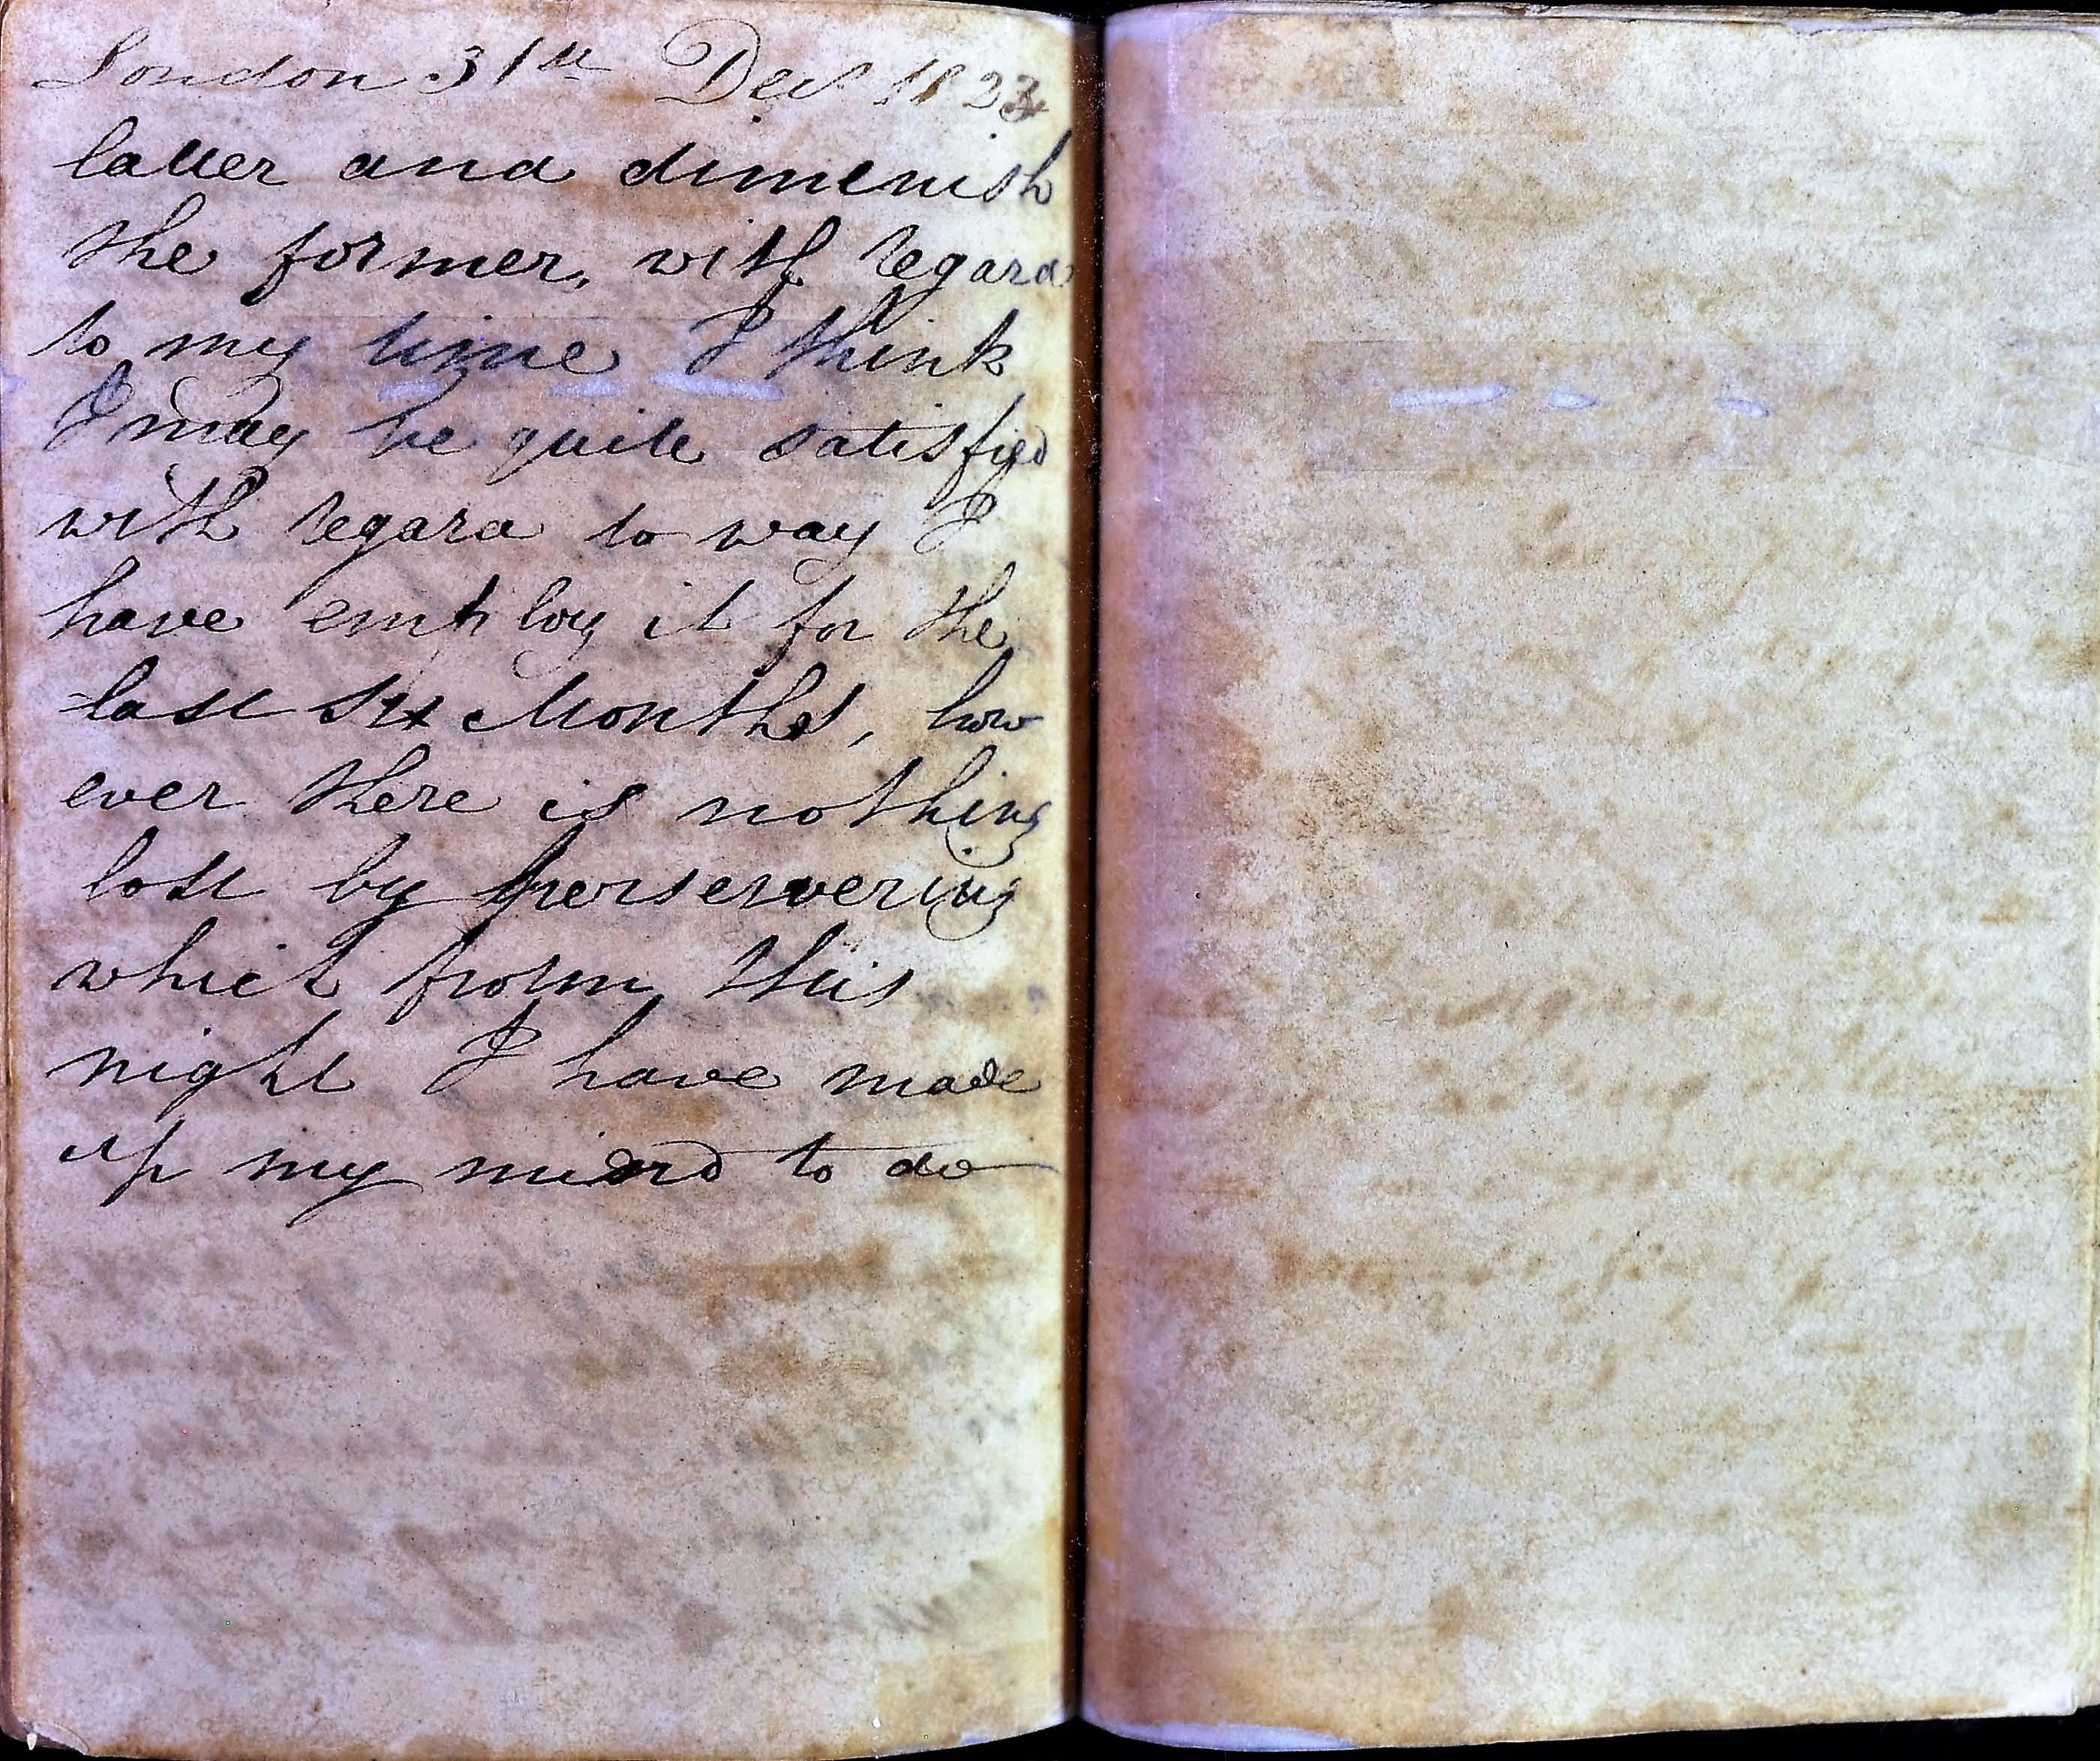 London 31th Decr 1823
latter and dimenish
the former, with regard
to my time I think
I may be quite satisfied
with regard to way I
have employ it for the
last six Months, how
ever there is nothing
lost by perservering
which from this
night I have made
up my mind to do